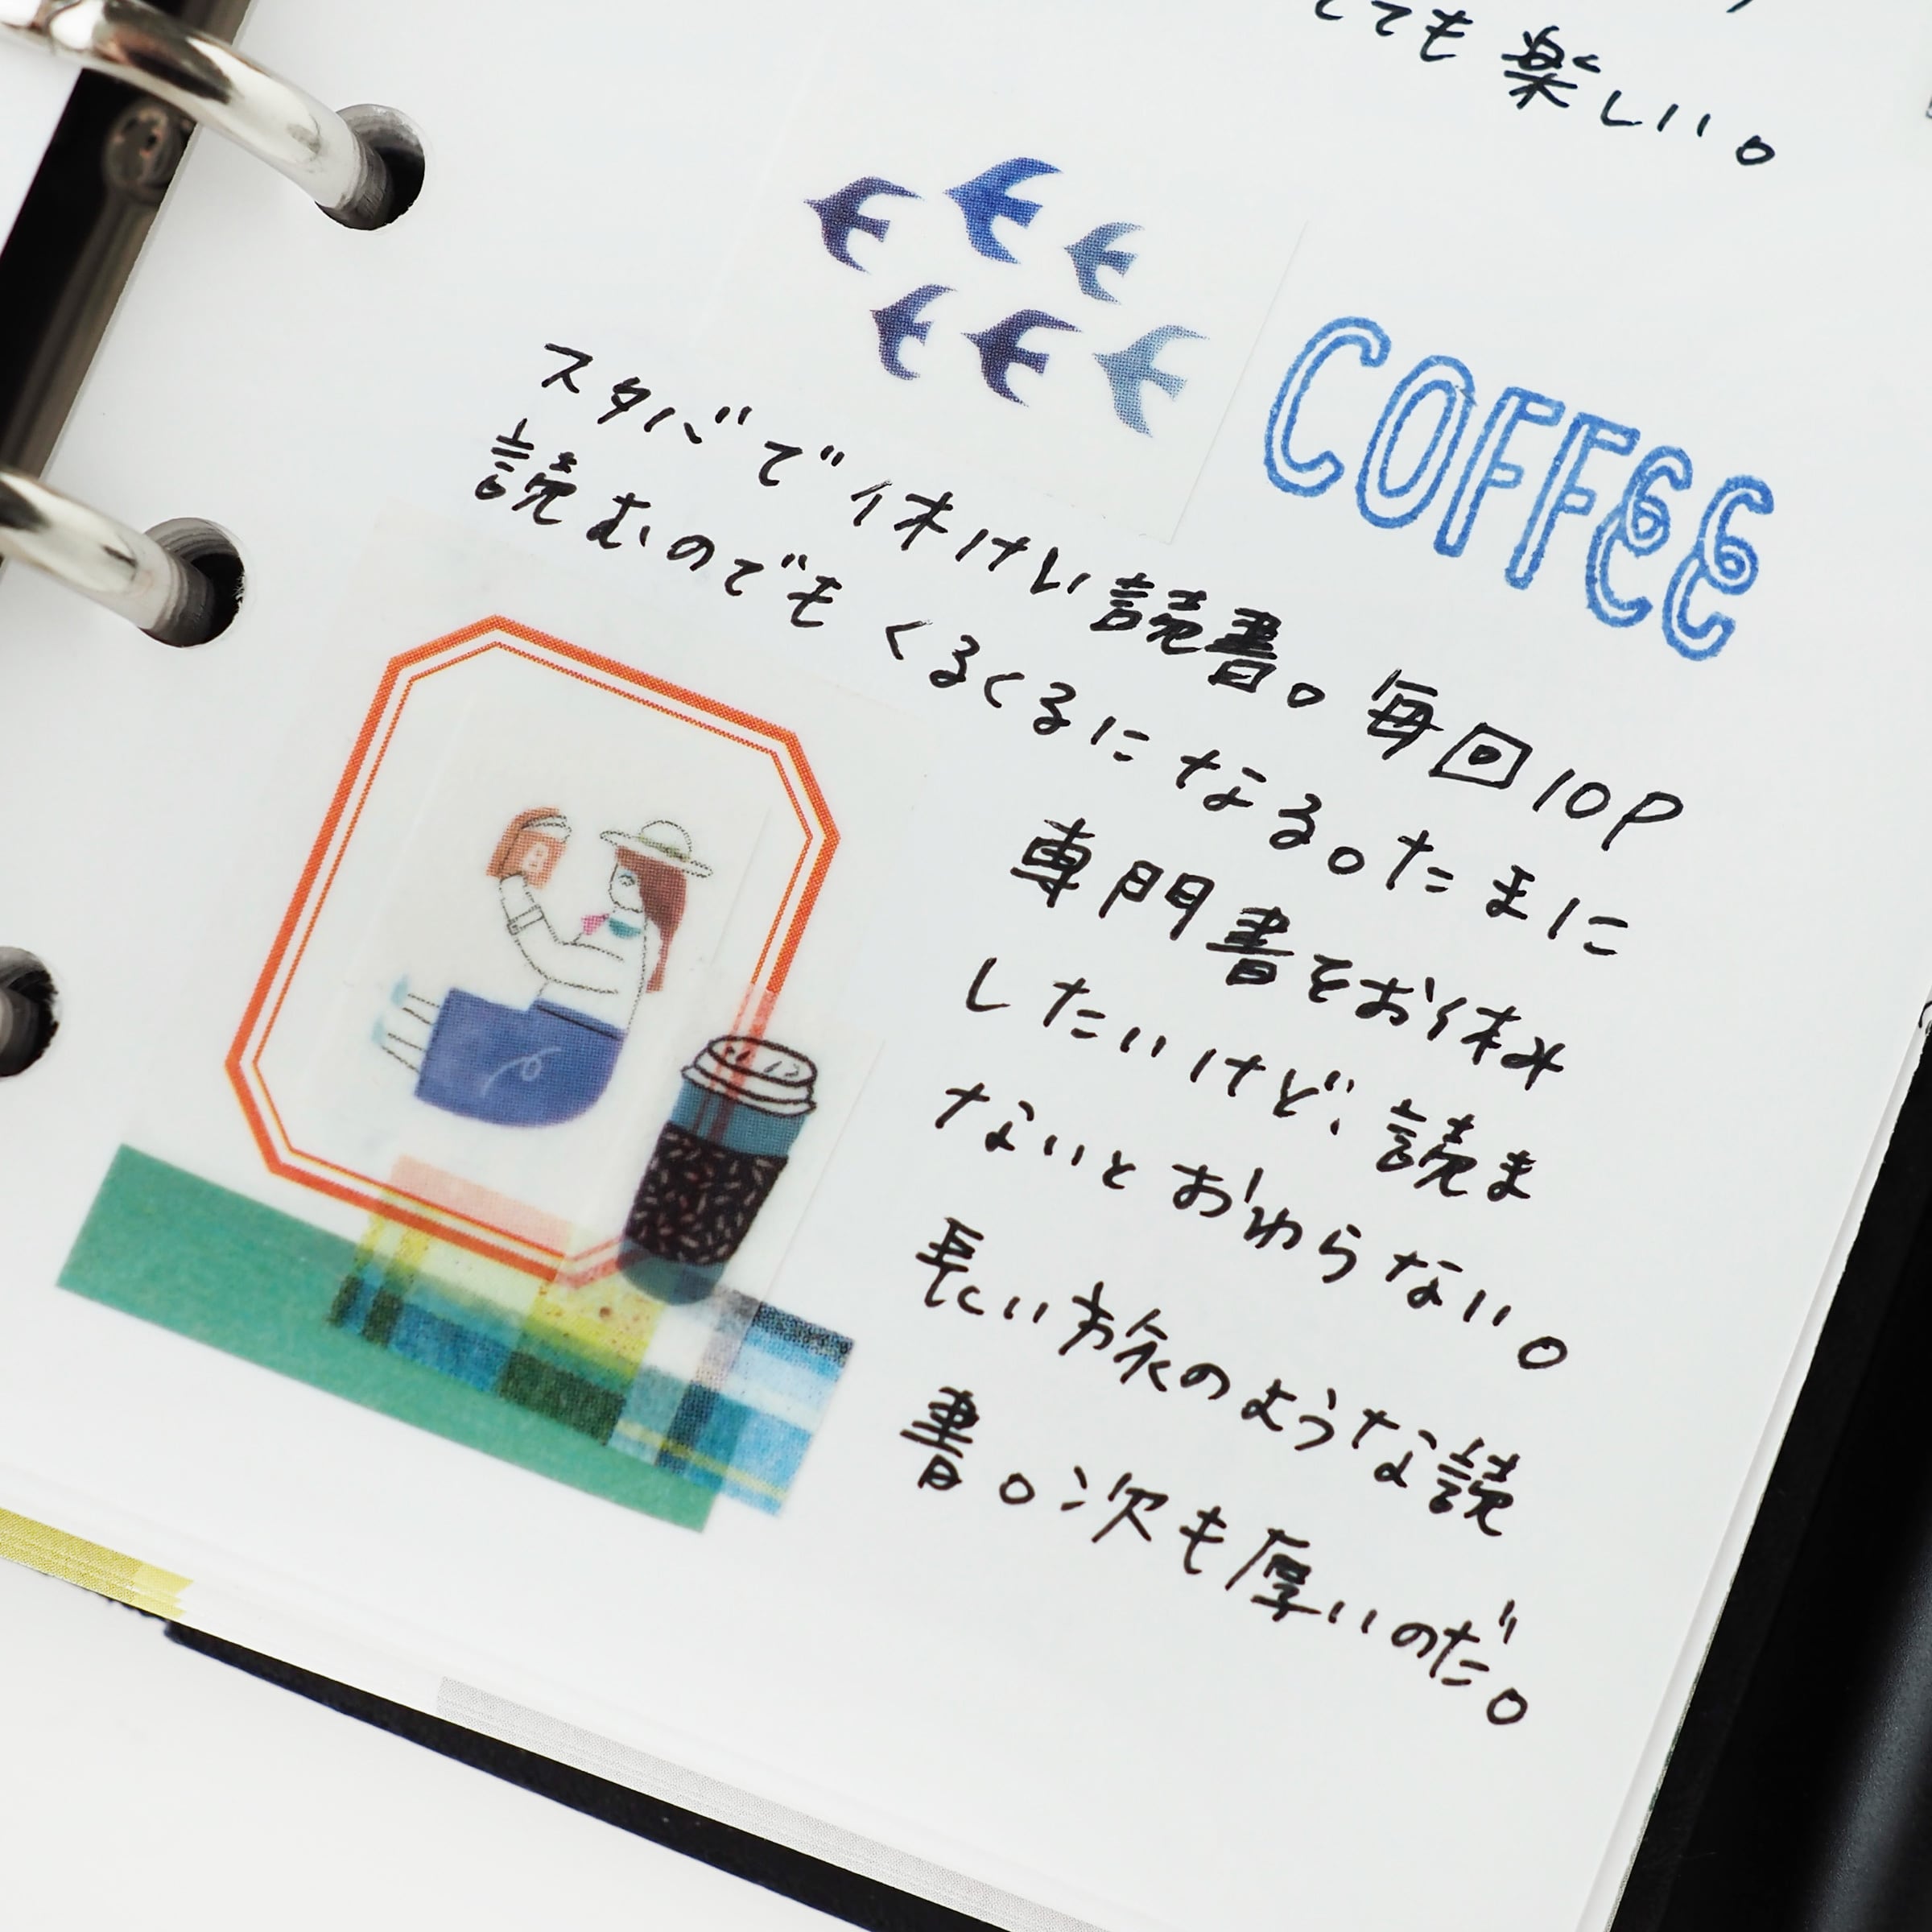 とても楽しい。
COFFEE
スタバで休けい読書。毎回10P
読むのでもくるくるになる。たまに
専門書をお休み
したいけど、読ま
ないとおわらない。
長い旅のような読
書。次も厚いのだ。